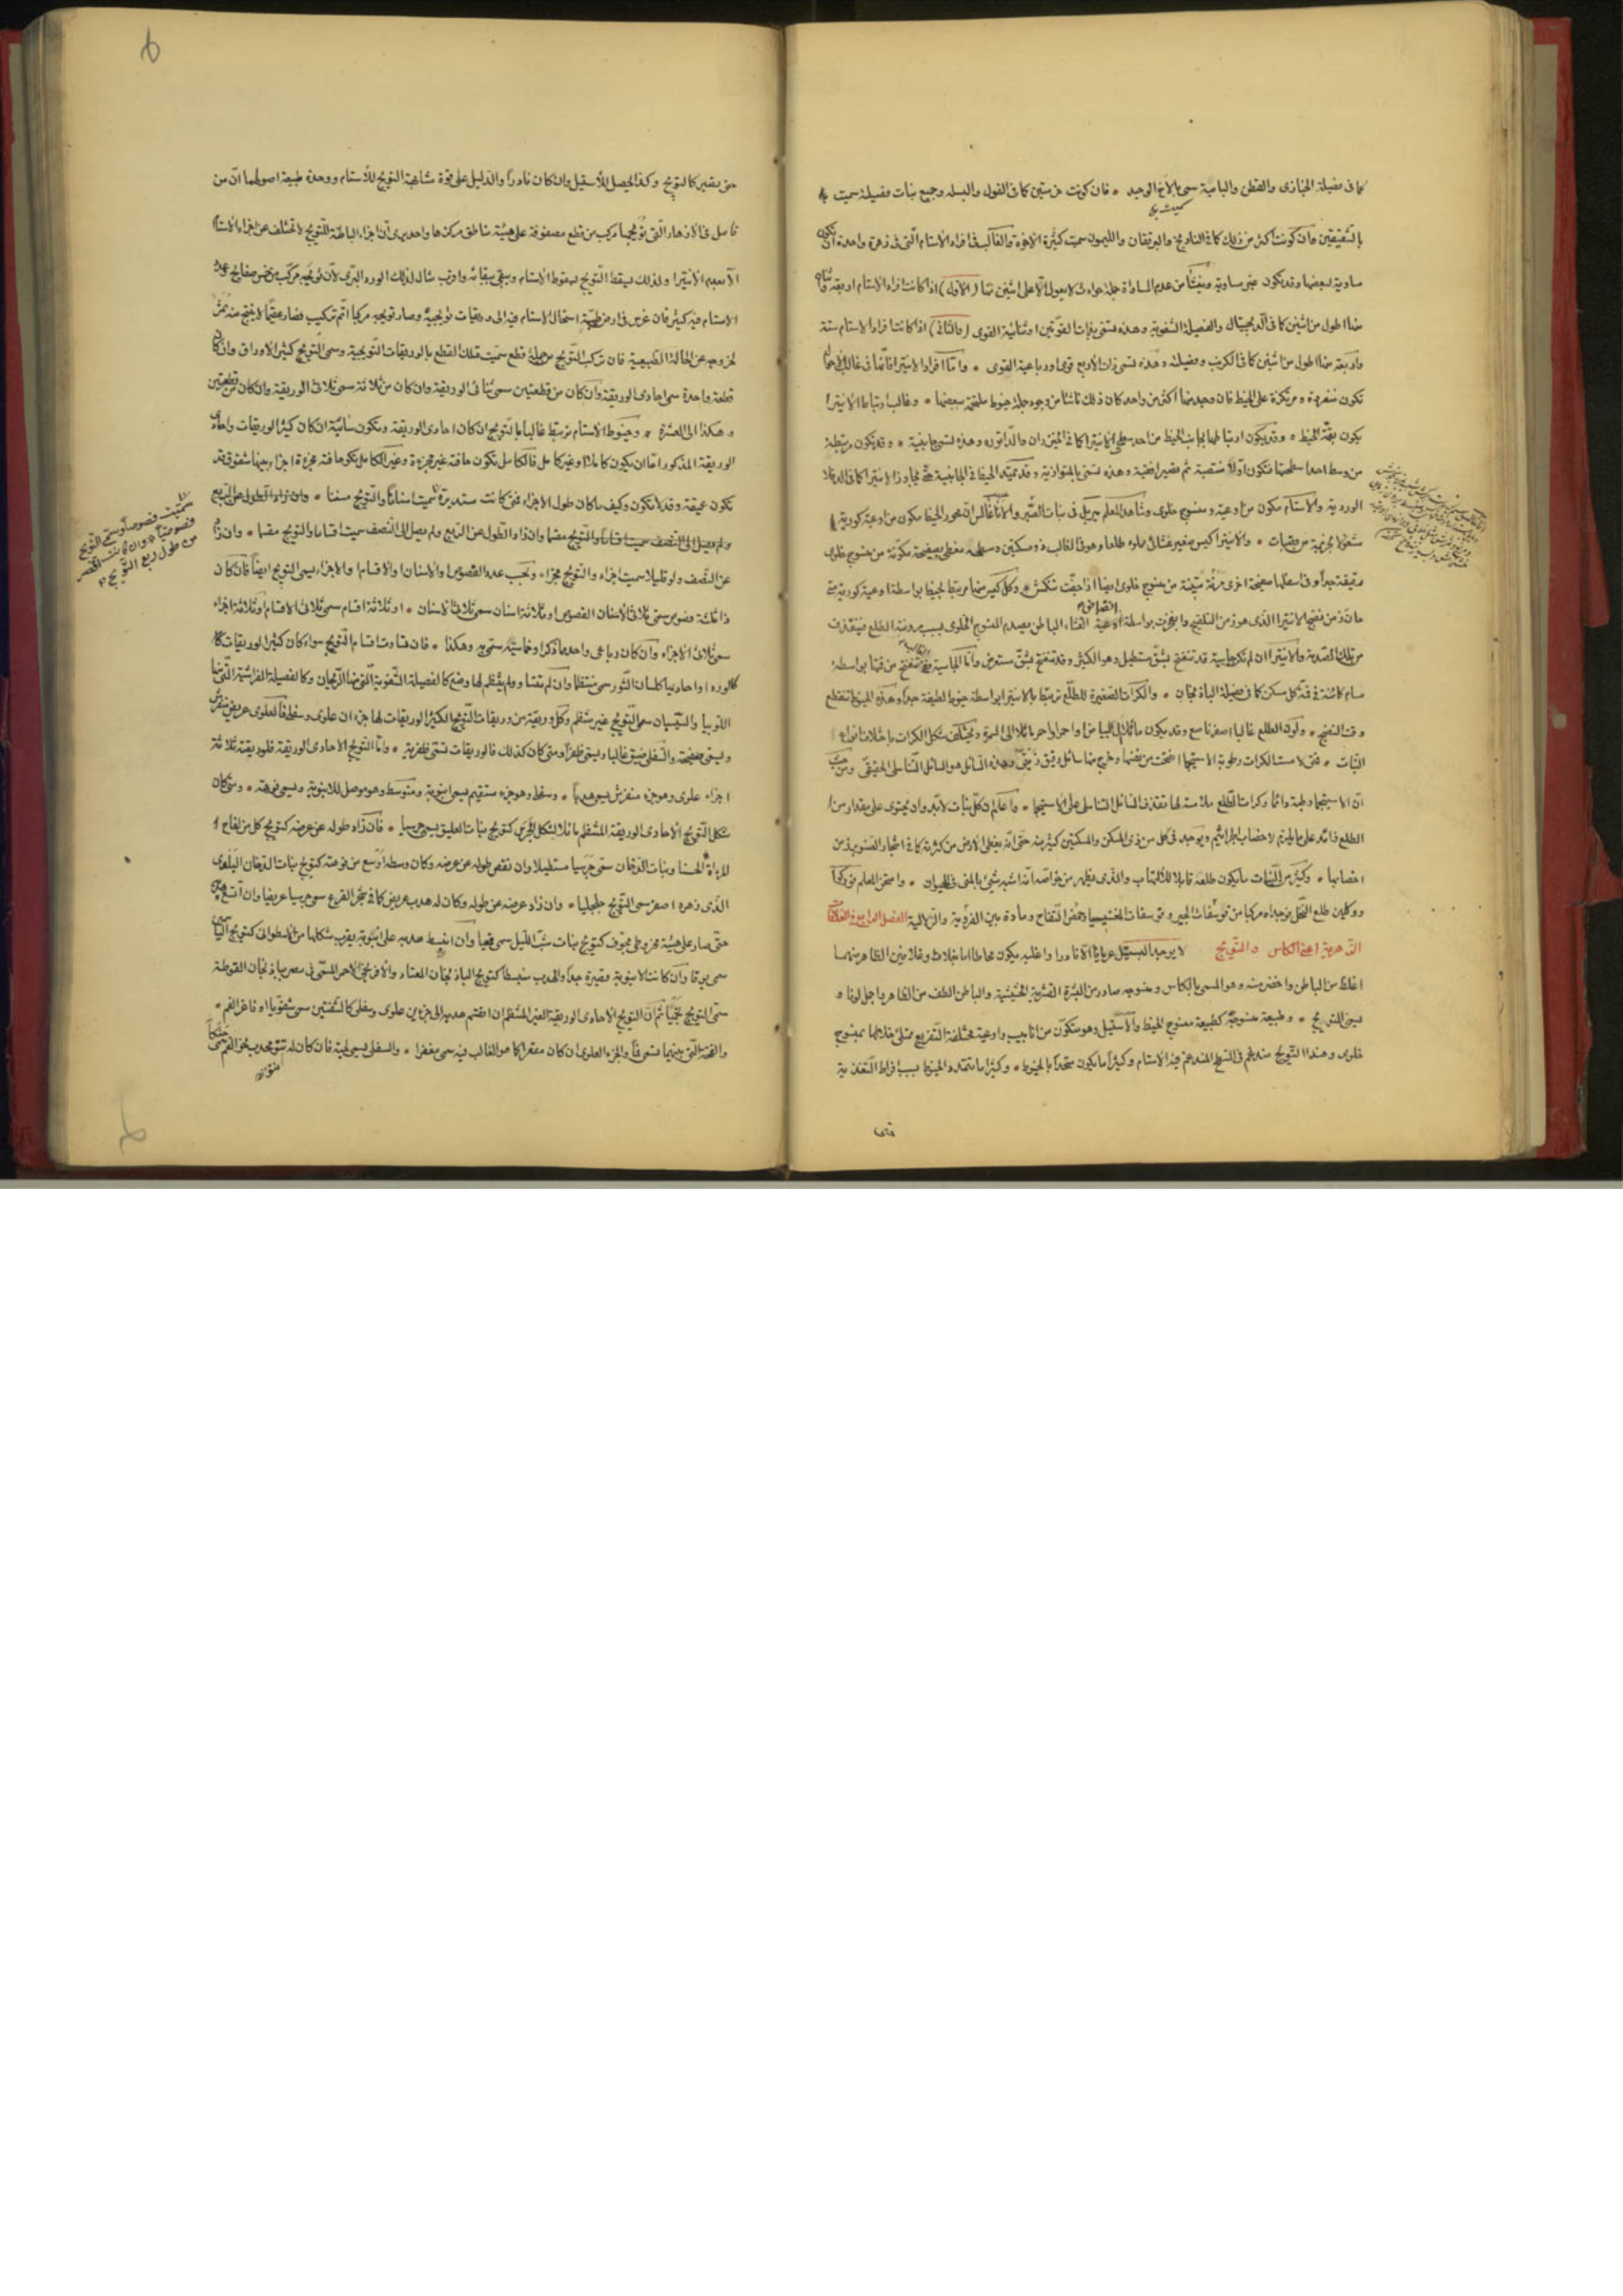 كما فى فصيلة الخبازى والقطن والبامية سمى بالأخ الوحيد • فان كونت حزمتين كما فى الفول والبسله وجميع نبات فصيلته سميت
بالشقيقين وان كونت اكثر من ذلك كما فى النارنج والبرتقان والليمون سميت كثيرة الاخوة والغالب فى افراد الاستام التى فى زهرة واحدة ان تكون
مساوية لبعضها وقد تكون غير مساوية وينشأ من عدم المساواة جملة حوادث لا يعول الا على اثنين منها (الاول) اذا كانت افراد الاستام اربعة
منها اطول من اثنين كما فى الديجيتال والفصيلة الشفوية وهذه تسمى بذات القوتين او ثنائية القوى (والثانى) اذا كانت افراد الاستام ستة
واربعة منها اطول من اثنين كما فى الكرنب وفصيلته وهذه تسمى ذات الاربع قوى او رباعية القوى • واما افراد الانتيرا فانها فى غالب الاحوال
تكون منفردة ومرتكزة على الخيط فان وجد منها اكثر من واحد كان ذلك ناشئا من وجود جملة خيوط ملتحمة ببعضها • وغالب ارتباط الانتيرا
يكون بقمة الخيط • وقد يكون ارتباطها بجانب الخيط من احد سطحى الانتيرا كما فى الخيزران والداتوره وهذه تسمى جانبية • وقد تكون مرتبطة
من وسط احد اسطحتها فتكون اولا منتصبة ثم تصير افقية وهذه تسمى بالمتوازنة وقد يمتد الخيط فى الجانبية حتى يجاوز الانتيرا كما فى الدفلا
الوردية والاستام مكون من اوعية ومنسوج خلوى وشاهد المعلم ميربل فى نبات الصبر
شعولا حزمية من قصبات • والانتيرا كيس صغير غشائى مملوء طلعا وهو فى الغالب ذو مسكنين وسطحه مغطى بصفيحة مكونة من منسوج خلوى
رقيقة جدا وفى اسفلها صفيحة اخرى مرنة متينة من منسوج خلوى ايضا اذا جفت تنكمش وكل كيس منها مرتبط بخيط بواسطة اوعية كورية
حان زمن نضج الانتيرا الذى هو زمن التلقيح وانفجرت بواسطة اوعية الغشاء الباطن يصدم المنسوج الخلوى بسبب مرونته الطلع فينقذف
من تلك الصدمة والانتيرا ان لم تكن جانبية قد تنفتح بشق مستطيل وهو الكثير وقد تنفتح بشق مستعرض واما الجانبية فتنفتح من قمتها بواسطة
مسام كائنة فى قمة كل مسكن كما فى فصيلة الباذنجان • والكرات الصغيرة للطلع ترتبط بالانتيرا بواسطة خيوط لطيفة جدا وهذه الخيوط تنقطع
وقت النضج • ولون الطلع غالبا اصفر ناصع وقد يكون مائلا الى البياض او احمر او احمر مائلا الى السمرة ويختلف شكل الكرات باختلاف انواع
النبات • متى لامست الكرات رطوبة الاستيجما انفتحت من نفسها وخرج منها سائل رقيق زيتى وهذه السائل هو السائل التناسلى الحقيقى ومن حيث
ان الاستيجما رطبة دائما وكرات الطلع ملامسة لها تقذف السائل التناسلى على الاستيجما • واعلم ان كل نبات لا بد وان يحتوى على مقدار من
الطلع زائد على ما يلزم لاخصاب الجراثيم ويوجد فى كل من ذى المسكن والمسكنين كثير منه حتى انه يغطى الارض من كثرته كما فى اشجار الصنوبر زمن
اخصابها • وكثير من النبات ما يكون طلعه قابلا للالتهاب والذى يظهر من خواصه انه اشبه شئ بالمنى فى الحيوان • وامتحن المعلم فوركوا
ووكلين طلع النخل فوجداه مركبا من فوسفات الجير وفوسفات المغنيسيا وحمض التفاح ومادة بين الغروية والزلالية الفصل الرابع فى الغلافات
الزهرية اعنى الكاس والتويج لا يوجد البستيل عريانا الا نادرا واغلبه يكون محاطا بغلاف وغلافين الظاهر منهما
اغلظ من الباطن واخضر منه وهو المسمى بالكاس ومنسوجه صادر من البشرة القشرية الحشيشية والباطن الطف من الظاهر واجمل لونا و
يسمى التويج • وطبيعة منسوجه كطبيعة منسوج الخيط والاستيل وهو متكون من انابيب واوعية مختلفة التفريع ممتلئ خلالها بمنسوج
خلوى وهذا التويج مندغم فى السطح المندغم فيه الاستام وكثيرا ما يكون متحدا بالخيوط • وكثيرا ما تتمدد الخيوط بسبب افراط التغذية
حتى
حتى تصير كالتويج وكذا يحصل للاستيل وان كان نادرا والدليل على قوة مشابهة التويج للاستام ووحدة طبيعة اصولهما ان من
تامل فى الازهار التى تويجها مركب من قطع مصفوفة على هيئة مناطق مركزها واحد يرى ان اجزاء الباطنة للتويج لا تختلف عن اجزاء الاستام
الا بعدم الانتيرا ولذلك يسقط التويج بسقوط الاستام ويبقى ببقائه واقرب مثال لذلك الورد البرى لان تويجه مركب من خمس صفائح وعدد
الاستام فيه كثير فان غرس فى ارض طيبة استحال الاستام فيه الى وريقات تويجية وصار تويجه مركبا اتم تركيب فصار عقيما لا ينتج منه ثمر
لخروجه عن الحالة الطبيعية فان تركب التويج من جملة قطع سميت تلك القطع بالوريقات التويجية وسمى التويج كثير الاوراق وان كان
قطعة واحدة سمى احادى الوريقة وان كان من قطعتين سمى ثنائى الوريقة وان كان من ثلاثة سمى ثلاثى الوريقة
وهكذا الى العشرة • وخيوط الاستام ترتبط غالبا بالتويج ان كان احادى الوريقة وتكون سائبة ان كان كثير الوريقات واحادى
الوريقة المذكور اما ان يكون كاملا او غير كامل فالكامل تكون حافته غير مجزءة وغير الكامل تكون حافته مجزءة اجزاء بينها شقوق قد
تكون عميقة وقد لا تكون وكيف ما كان طول الاجزاء فمتى كانت مستديرة سميت اسنانا والتويج مسننا • وان زاد الطول على الربع
ولم يصل الى النصف سميت اقساما والتويج مقسما • وان زاد
عن النصف ولو قليلا سميت اجزاء والتويج مجزءا • وبحسب عدد الفصوص والاسنان والاقسام والاجزاء يسمى التويج ايضا فان كان
ذا ثلاثة فصوص سمى ثلاثى الفصوص او ثلاثة اسنان سمى ثلاثى الاسنان • او ثلاثة اقسام سمى ثلاثى الاقسام او ثلاثة اجزاء
سمى ثلاثى الاجزاء وان كان رباعى واحد مما ذكر او خماسيه سمى به وهكذا • فان تساوت اقسام التويج سواء كان كثير الوريقات
كالورد او احاديها كلسان الثور سمى منتظما وان لم تتساو ولم ينتظم لها وضع كالفصيلة الشفوية التى منها الريحان وكالفصيلة الفراشية التى منها
اللوبيا والسيسبان سمى التويج غير منتظم وكل وريقة من وريقات التويج الكثير الوريقات لها جزءان علوى وسفلى فالعلوى عريض منفرش
ويسمى صفيحة والسفلى ضيق غالبا ويسمى ظفرا ومتى كان كذلك فالوريقات تسمى ظفرية • واما التويج الاحادى الوريقة فلوريقته ثلاثة
اجزاء علوى وهو جزء منفرش يسمى هدبا • وسفلى وهو جزء مستقيم يسمى انبوبة ومتوسط وهو موصل للانبوبة ويسمى فوهة • ومتى كان
شكل التويج الاحادى الوريقة المنتظم مماثلا لشكل الجرس كتويج نبات العليق يسمى جرسيا • فان زاد طوله عن عرضه كتويج كل من لفاح
المراة الحسنا ونبات الدخان سمى جرسيا مستطيلا وان نقص طوله عن عرضه وكان وسطه اوسع من فوهته كتويج نبات الدخان البلغارى
الذى زهره اصفر سمى التويج جلجليا • وان زاد عرضه عن طوله وكان له هدب عريض كما فى شجر القرع سمى جرسيا عريضا وان اتسع
حتى صار على هيئة مخروطى مجوف كتويج نبات شب الليل سمى قمعيا وان انبسط هدبه على انبوبة يقرب شكلها من الاسطوانى
سمى بوقا وان كانت الانبوبة قصيرة جدا والهدب منبسطا كتويج الباذنجان المعتاد والافرنجى الاحمر المسمى فى مصر باذنجان القوطة
سمى التويج نجميا ثم ان التويج الاحادى الوريقة الغير المنتظم ان انقسم هدبه الى جزءين علوى وسفلى كالشفتين سمى شفويا او فاغر الفم •
والفتحة التى بينهما تسمى فما والجزء العلوى ان كان مقعرا كما هو الغالب فيه سمى مغفرا • والسفلى يسمى لحية فان كان له نتؤ محدب نحو الفم سمى حنكا
سميت فصوصا ويسمى التويج
فصوصيا • وان كانت اقصر
من طول ربع التويج